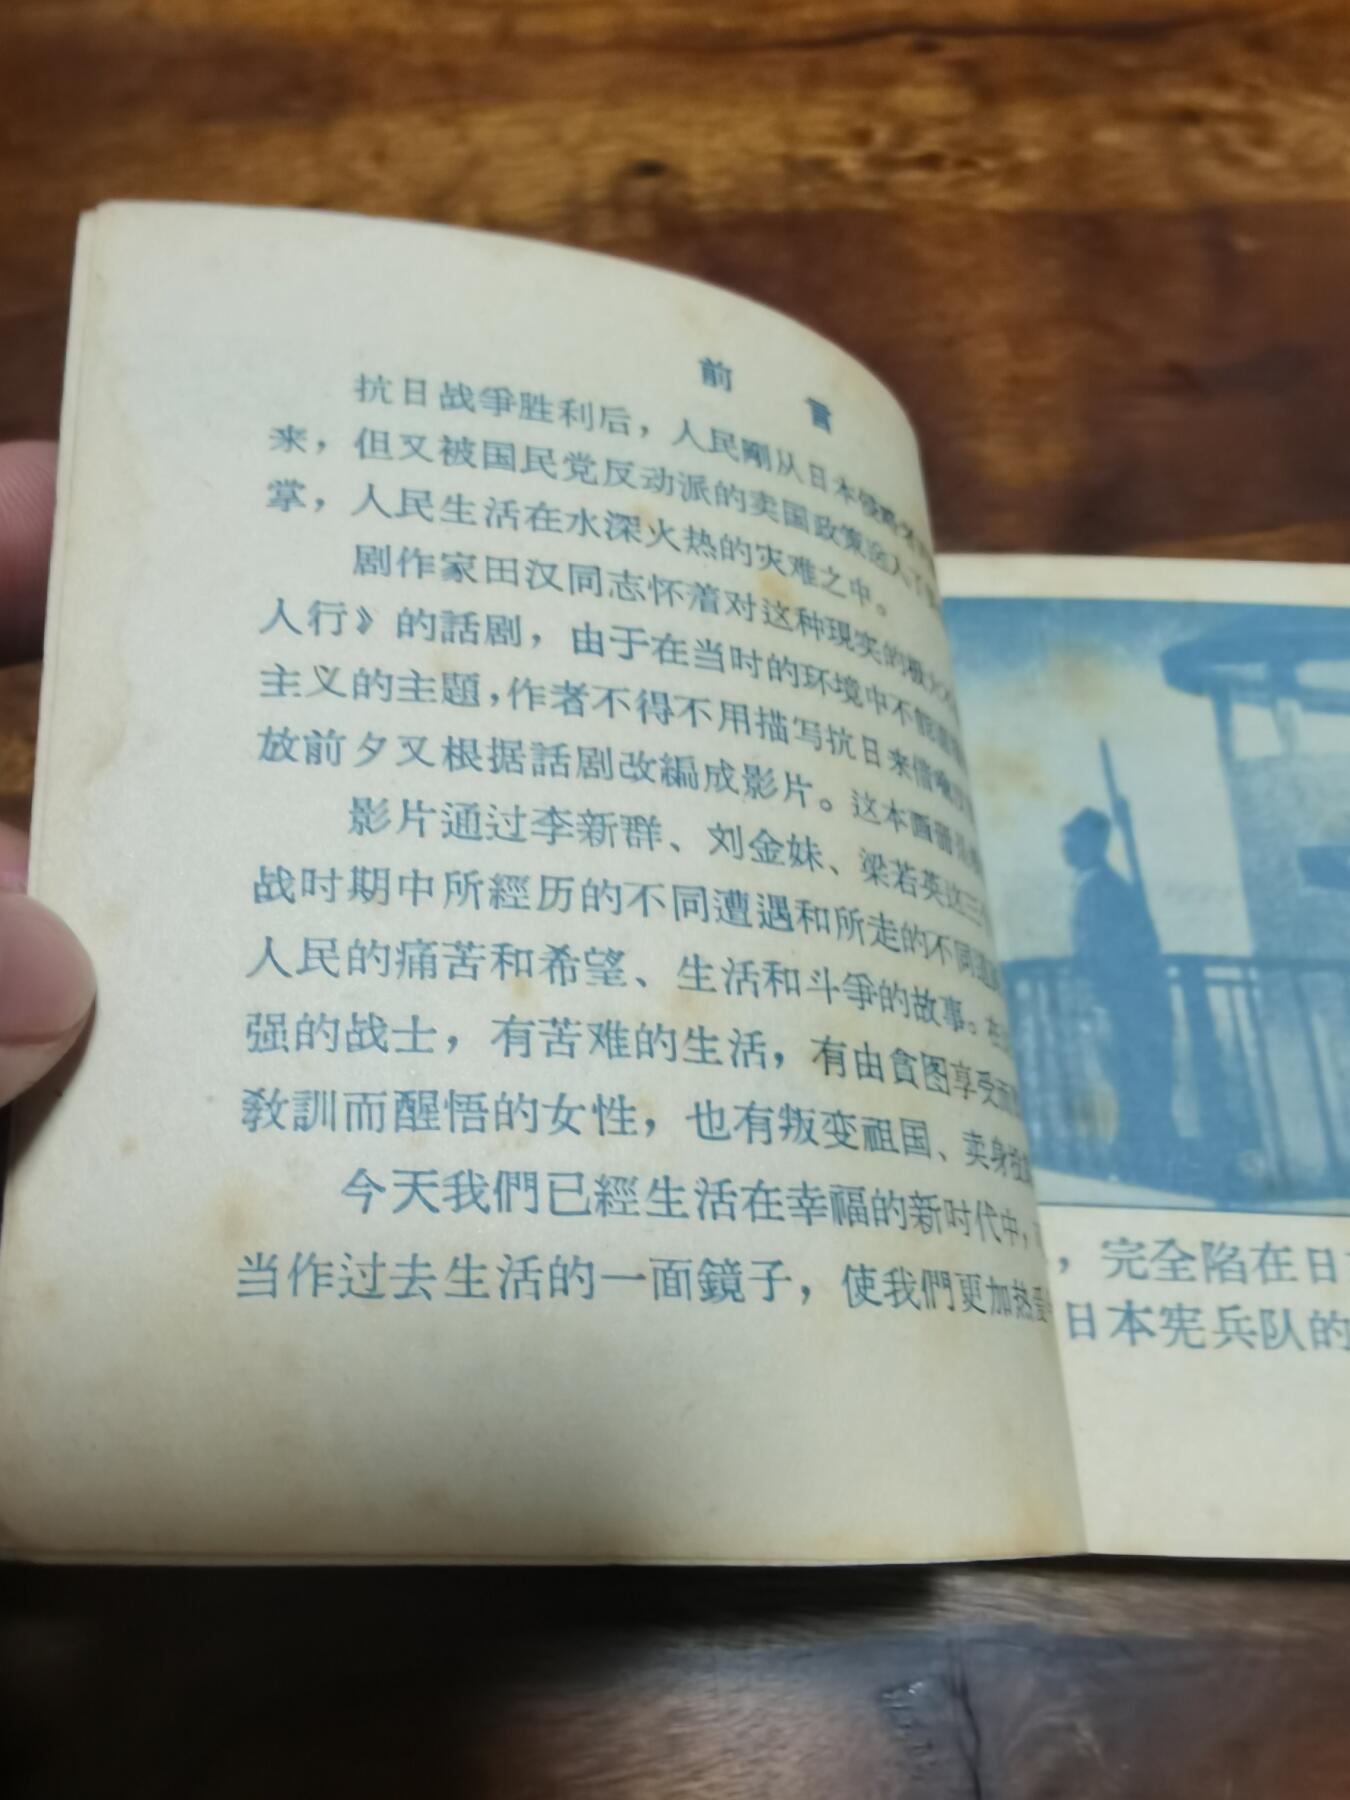 前言
抗日战爭胜利后，人民剛从日本侵略
来，但又被国民党反动派的卖国政策
掌，人民生活在水深火热的灾难之中。
剧作家田汉同志怀着对这种現实的极大
人行》的話剧，由于在当时的环境中不能
主义的主題，作者不得不用描写抗日来借喻
放前夕又根据話剧改編成影片。这本画册
影片通过李新群、刘金妹、梁若英这三
战时期中所經历的不同遭遇和所走的不同道
人民的痛苦和希望、生活和斗爭的故事。在
强的战士，有苦难的生活，有由貪图享受而
敎訓而醒悟的女性，也有叛变祖国、卖身
今天我們已經生活在幸福的新时代中，
当作过去生活的一面鏡子，使我們更加热爱
，完全陷在日
日本宪兵队的